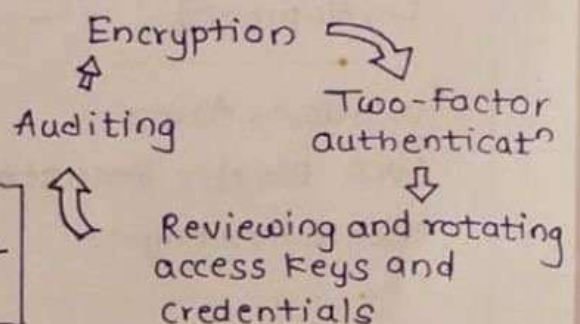 Encryption
Two-Factor
authenticatⁿ
Auditing
Reviewing and rotating
access keys and
credentials